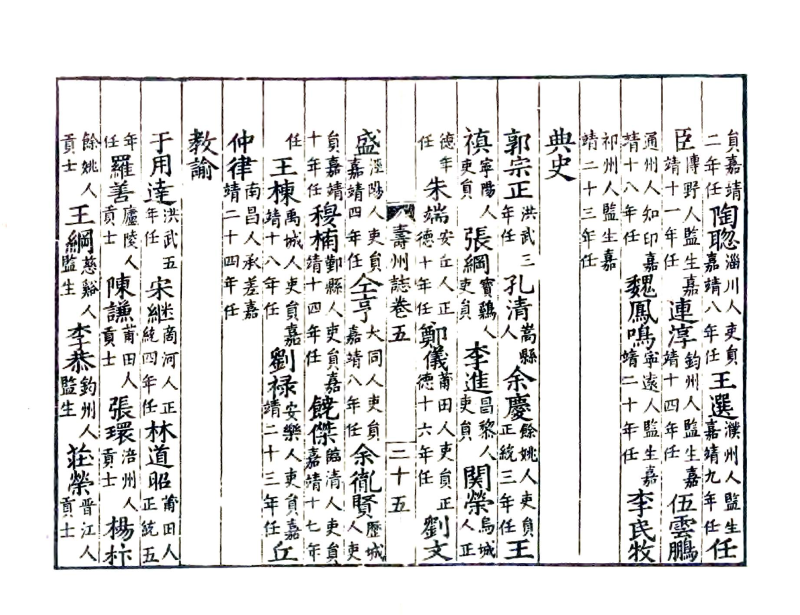 貟嘉靖二年任陶聦淄川人吏貟嘉靖八年任王選濮州人監生嘉靖九年任任
臣博野人監生嘉靖十一年任連淳鈞州人監生嘉靖十四年任伍雲鵬
通州人知印嘉靖十八年任魏鳳鳴寧遠人監生嘉靖二十年任李民牧
祁州人監生嘉靖二十三年任
典史
郭宗正洪武三年任孔清嵩縣人余慶餘姚人吏貟正統三年任王
禛寧陽人吏貟張綱寶鷄人吏貟李進昌黎人吏貟関榮烏城人正
德年任朱端安丘人正德十年任鄭儀莆田人吏貟正德十六年任劉文
壽州誌卷五 二十五
盛涇陽人吏貟嘉靖四年任仝亨大同人吏貟嘉靖八年任余胤賢歷城人吏
貟嘉靖十年任穆楠鄞縣人吏貟嘉靖十四年任饒傑臨清人吏貟嘉靖十七年
任王棟禹城人吏貟嘉靖十八年任劉禄安樂人吏貟嘉靖二十三年任丘
仲律南昌人承差嘉靖二十四年任
教諭
于用達洪武五年任宋継商河人正統四年任林道昭莆田人正統五
年任羅善廬陵人貢士陳謙莆田人貢士張環涪州人楊枟
餘姚人貢士王綱慈谿人監生李恭鈞州人監生莊榮晋江人貢士